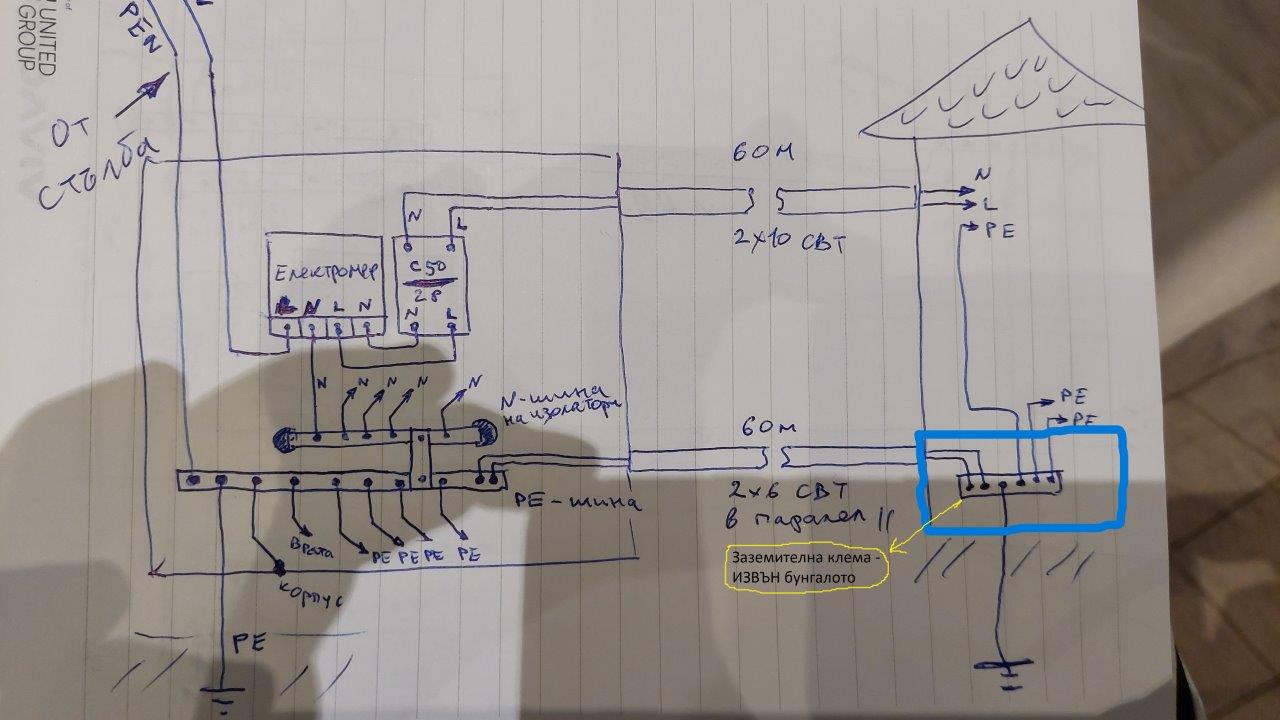 UNITED
GROUP
PEN
L
ОТ
СТЪЛБА
60 м
N
L
PE
2x10 СВТ
N
L
Електромер
C50
2P
L N L N
N L
N N N N N
N-шина
на изолатори
60 м
PE
PE
PE-шина
2x6 СВТ
в паралел ||
Заземителна клема -
ИЗВЪН бунгалото
Врата
PE PE PE PE
корпус
PE